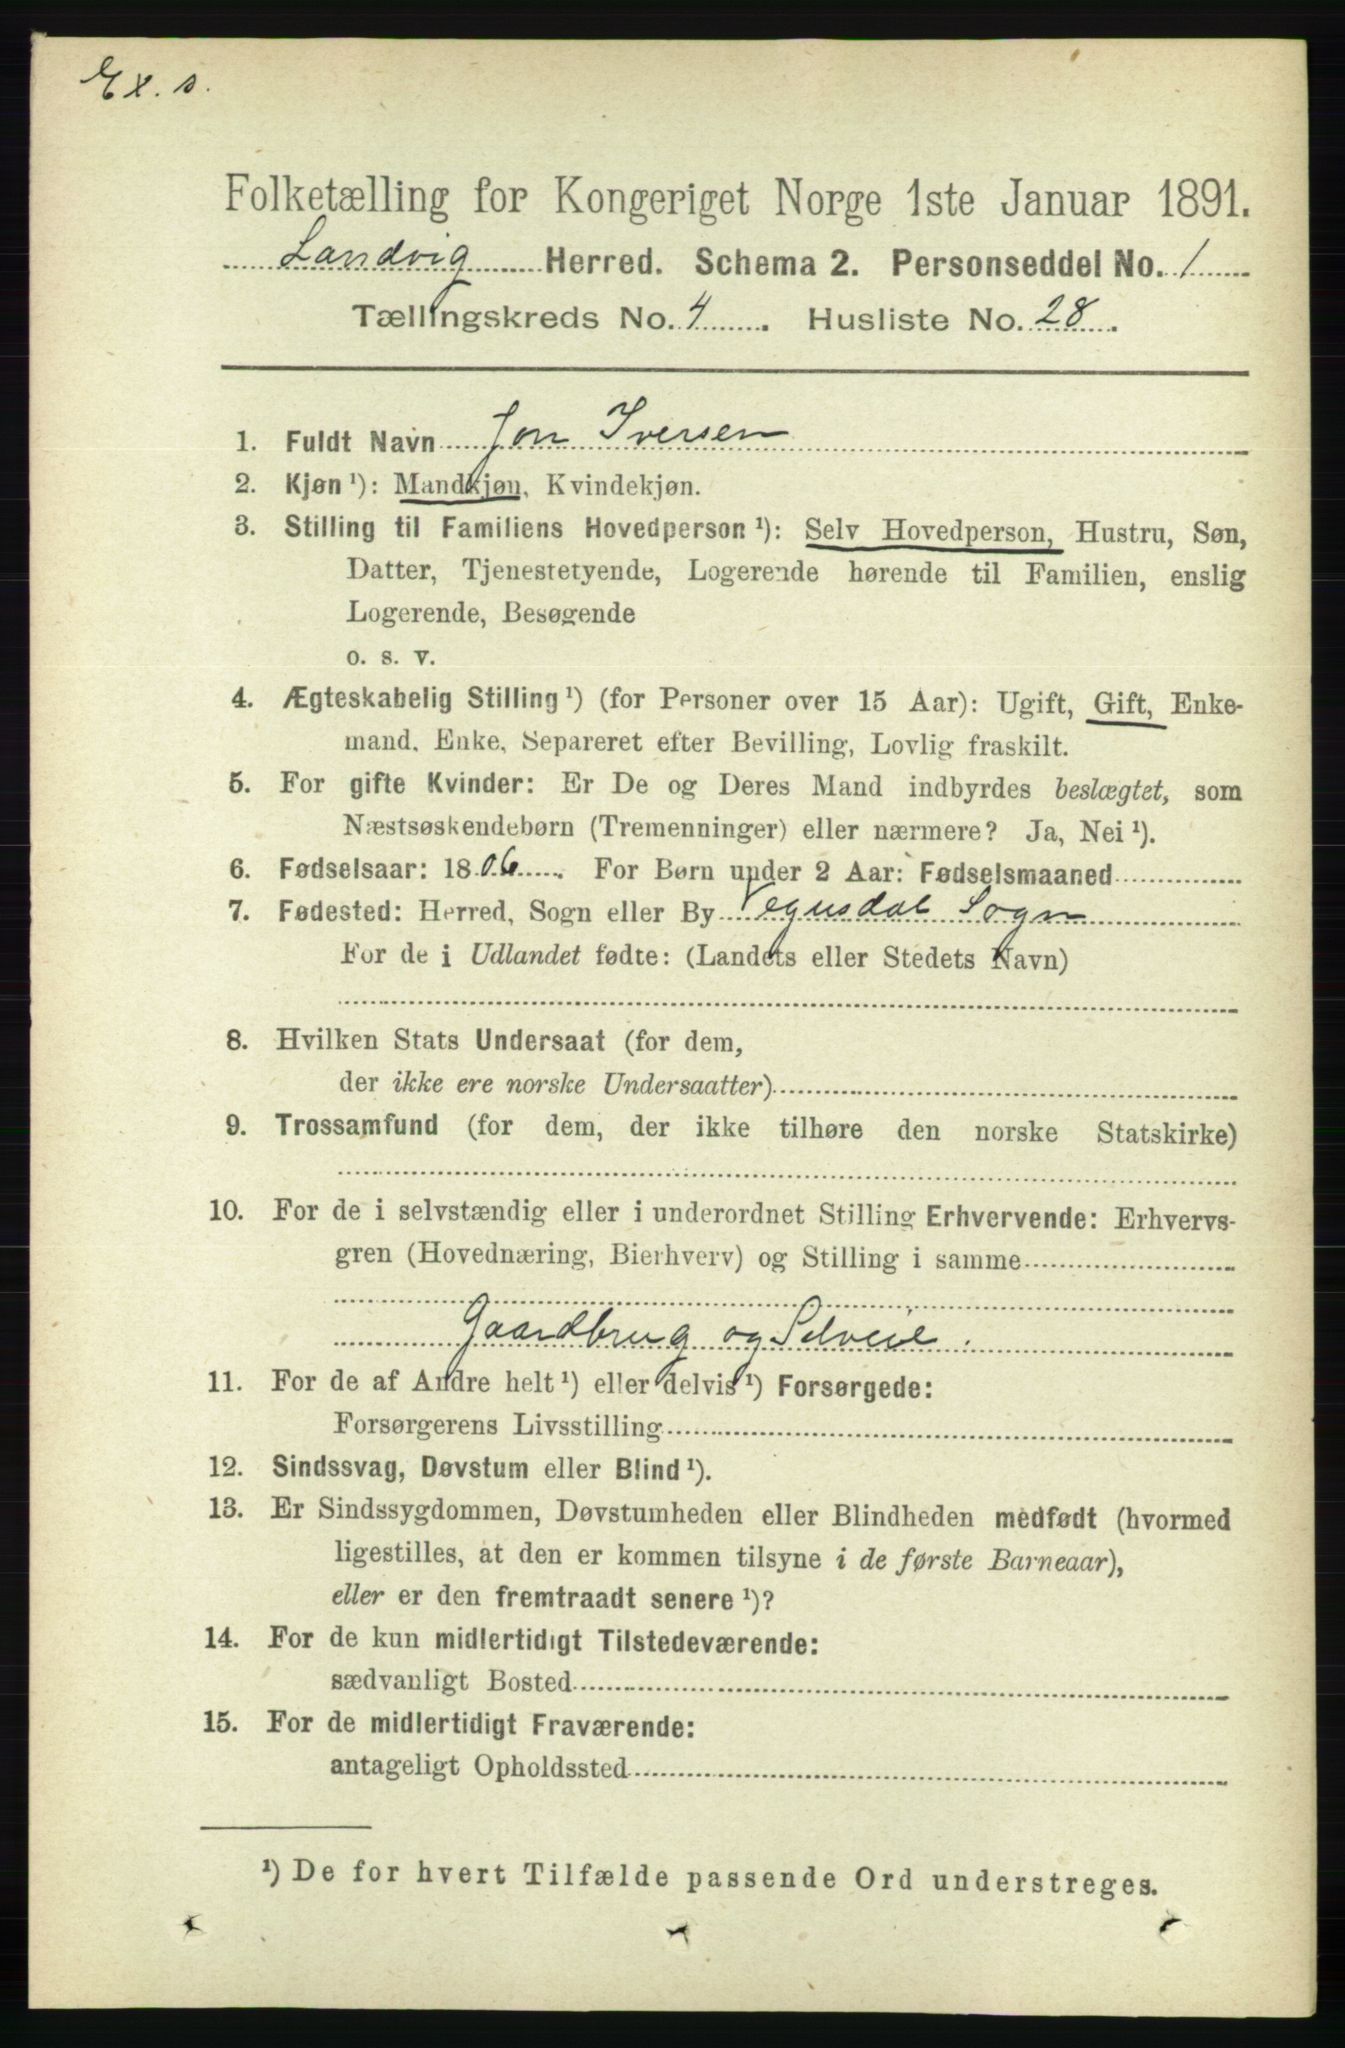 Ex. s.
Folketælling for Kongeriget Norge 1ste Januar 1891.
Landvig Herred. Schema 2. Personseddel No. 1
Tællingskreds No. 4. Husliste No. 28.
1. Fuldt Navn Jon Iversen
2. Kjøn ¹): Mandkjøn, Kvindekjøn.
3. Stilling til Familiens Hovedperson ¹): Selv Hovedperson, Hustru, Søn,
Datter, Tjenestetyende, Logerende hørende til Familien, enslig
Logerende, Besøgende
o. s. v.
4. Ægteskabelig Stilling ¹) (for Personer over 15 Aar): Ugift, Gift, Enke-
mand, Enke, Separeret efter Bevilling, Lovlig fraskilt.
5. For gifte Kvinder: Er De og Deres Mand indbyrdes beslægtet, som
Næstsøskendebørn (Tremenninger) eller nærmere? Ja, Nei ¹).
6. Fødselsaar: 1806. For Børn under 2 Aar: Fødselsmaaned
7. Fødested: Herred, Sogn eller By Vegusdal Sogn
For de i Udlandet fødte: (Landets eller Stedets Navn)
8. Hvilken Stats Undersaat (for dem,
der ikke ere norske Undersaatter)
9. Trossamfund (for dem, der ikke tilhøre den norske Statskirke)
10. For de i selvstændig eller i underordnet Stilling Erhvervende: Erhvervs-
gren (Hovednæring, Bierhverv) og Stilling i samme
Gaardbrug og Selveie.
11. For de af Andre helt ¹) eller delvis ¹) Forsørgede:
Forsørgerens Livsstilling
12. Sindssvag, Døvstum eller Blind ¹).
13. Er Sindssygdommen, Døvstumheden eller Blindheden medfødt (hvormed
ligestilles, at den er kommen tilsyne i de første Barneaar),
eller er den fremtraadt senere ¹)?
14. For de kun midlertidigt Tilstedeværende:
sædvanligt Bosted
15. For de midlertidigt Fraværende:
antageligt Opholdssted
¹) De for hvert Tilfælde passende Ord understreges.